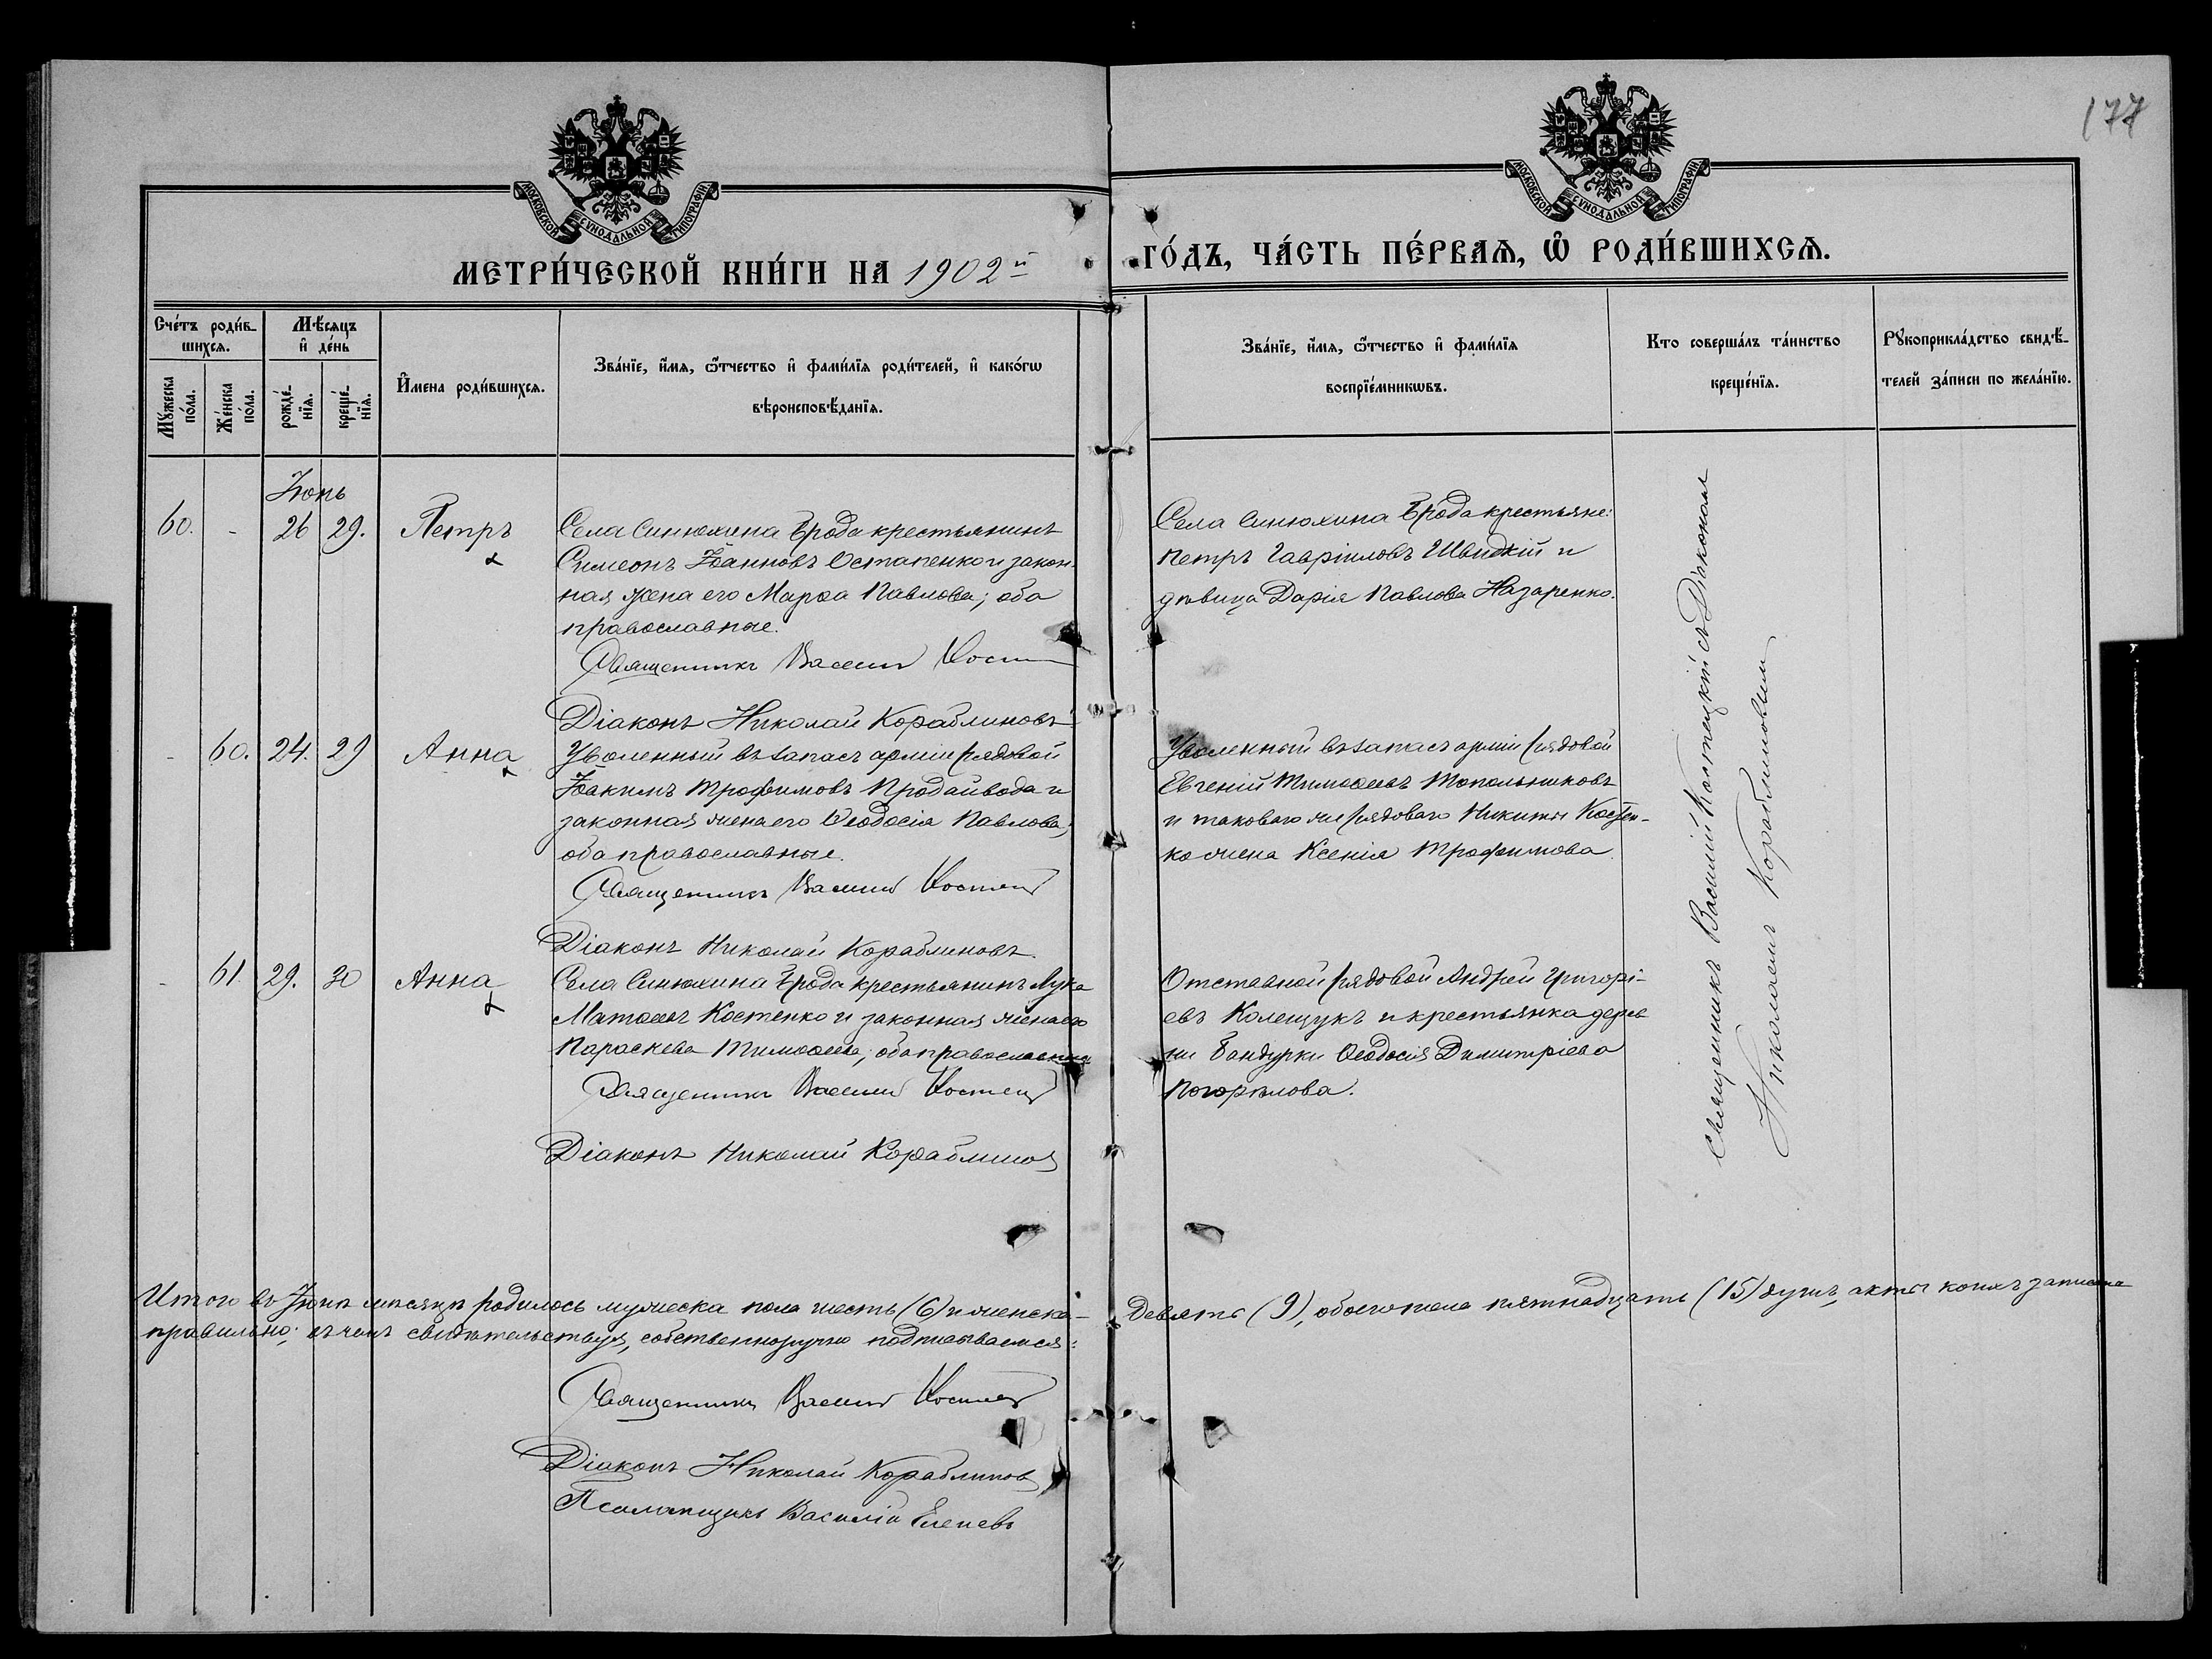 177
МОСКОВСКОЙ СѴНОДАЛЬНОЙ ТИПОГРАФІИ
МОСКОВСКОЙ СѴНОДАЛЬНОЙ ТИПОГРАФІИ
МЕТРИ́ЧЕСКОЙ КНИ́ГИ НА 1902й
ГО́ДЪ, ЧА́СТЬ ПЕ́РВАѦ, Ѡ РОДИ́ВШИХСѦ.
Сче́тъ роди́в-
шихсѧ.
Мѣ́сѧцъ
и де́нь
Мꙋ́жеска
по́ла.
Же́нска
по́ла.
рожде́-
нїѧ.
креще́-
нїѧ.
И́мена роди́вшихсѧ.
Зва́нїе, и́мѧ, ѻ́тчество и фами́лїѧ роди́телей, и како́гѡ
вѣроисповѣ́данїѧ.
Зва́нїе, и́мѧ, ѻ́тчество и фами́лїѧ
воспрїе́мникѡвъ.
Кто соверша́лъ та́инство
креще́нїѧ.
Рꙋкоприкла́дство свидѣ́-
телей за́писи по жела́нїю.
Іюнь
60. - 26 29. Петръ
Села Синюхина Брода крестьянинъ
Симеонъ Іоанновъ Остапенко и закон-
ная жена его Марѳа Павлова; оба
православные.
Священникъ Василій
Діаконъ Николай Кораблиновъ
Села Синюхина Брода крестьяне:
Петръ Гавріиловъ Швидкій и
дѣвица Дарія Павлова Назаренко.
- 60. 24. 29 Анна
Уволенный въ запасъ арміи рядовой
Іоакимъ Трофимовъ Продайвода и
законная жена его Ѳеодосія Павлова;
оба православные.
Священникъ Василій
Діаконъ Николай Кораблиновъ.
Уволенный въ запасъ арміи рядовой
Евгеній Тимоѳеевъ Топольниковъ
и таковаго же рядоваго Никиты Костен-
ко жена Ксенія Трофимова.
- 61 29. 30 Анна
Села Синюхина Брода крестьянинъ Лука
Матѳеевъ Костенко и законная жена его
Параскева Тимоѳеева; оба православные
Священникъ Василій
Діаконъ Николай Кораблиновъ
Отставной рядовой Андрей Григорі-
евъ Колещукъ и крестьянка дерев
ни Бандурки Ѳеодосія Димитріева
Погорѣлова.
Священникъ Василій Костецкій съ Діакономъ
Николаемъ Кораблиновымъ
Итого въ Іюнѣ мѣсяцѣ родилось мужеска пола шесть (6) и женска - Девять (9), обоего пола пятнадцать (15) душъ, акты коихъ записаны
правильно; въ чемъ свидѣтельствуя, собственноручно подписываемся:
Священникъ Василій
Діаконъ Николай Кораблиновъ
Псаломщикъ Василій